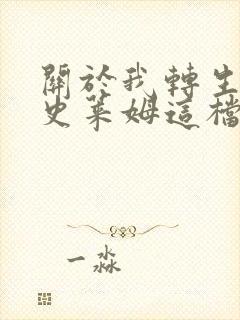 關於我轉生
史萊姆這檔
一淼